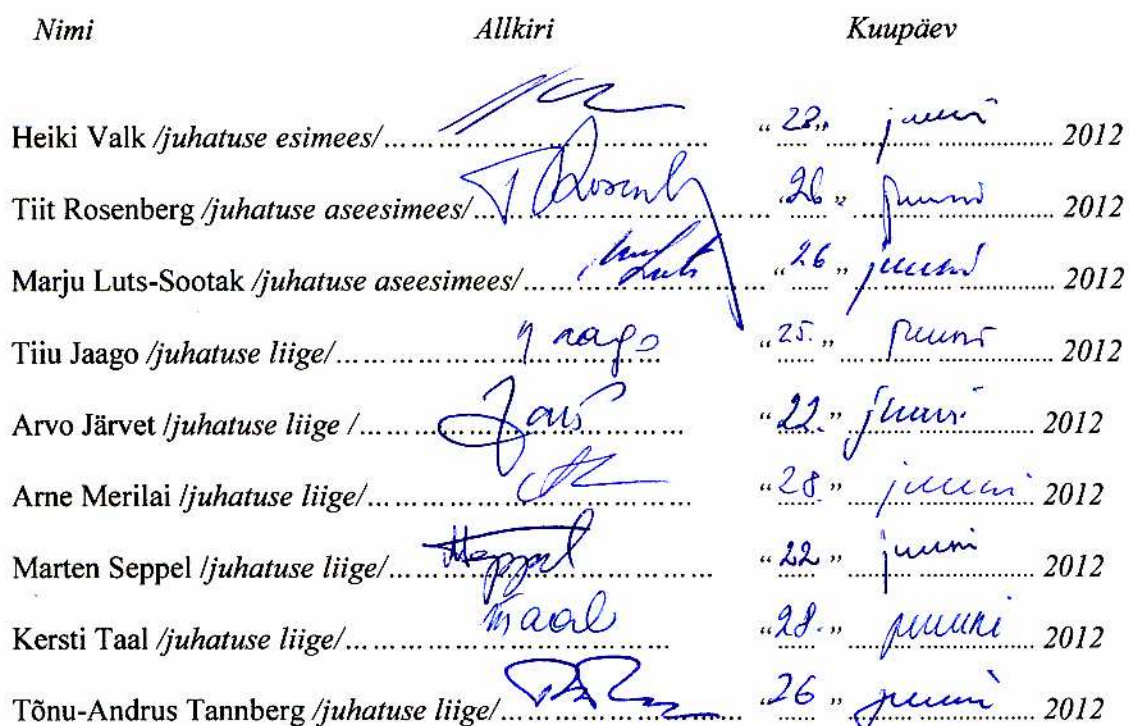 Nimi Allkiri Kuupäev
Heiki Valk /juhatuse esimees/ "28" juuni 2012
Tiit Rosenberg /juhatuse aseesimees/ T Rosenb "26" juuni 2012
Marju Luts-Sootak /juhatuse aseesimees/ Luts "26" juuni 2012
Tiiu Jaago /juhatuse liige/ Jaago "25." juuni 2012
Arvo Järvet /juhatuse liige / "22." juuni 2012
Arne Merilai /juhatuse liige/ "28." juuni 2012
Marten Seppel /juhatuse liige/ MSeppel "22" juuni 2012
Kersti Taal /juhatuse liige/ "28." juuni 2012
Tõnu-Andrus Tannberg /juhatuse liige/ "26" juuni 2012